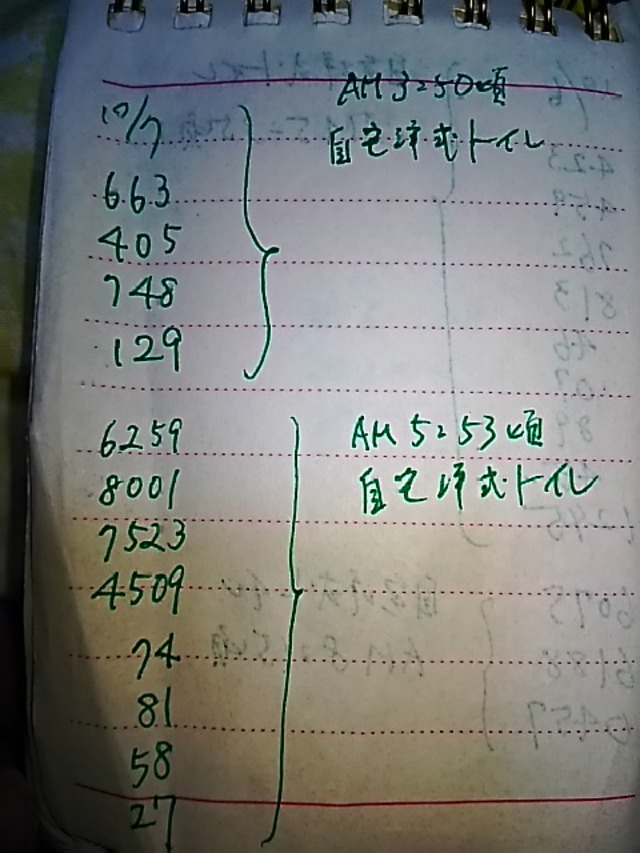 10/7
AM 3:50頃
自宅洋式トイレ
663
405
748
129
6259
AM 5:53頃
8001
自宅洋式トイレ
7523
4509
74
81
58
27